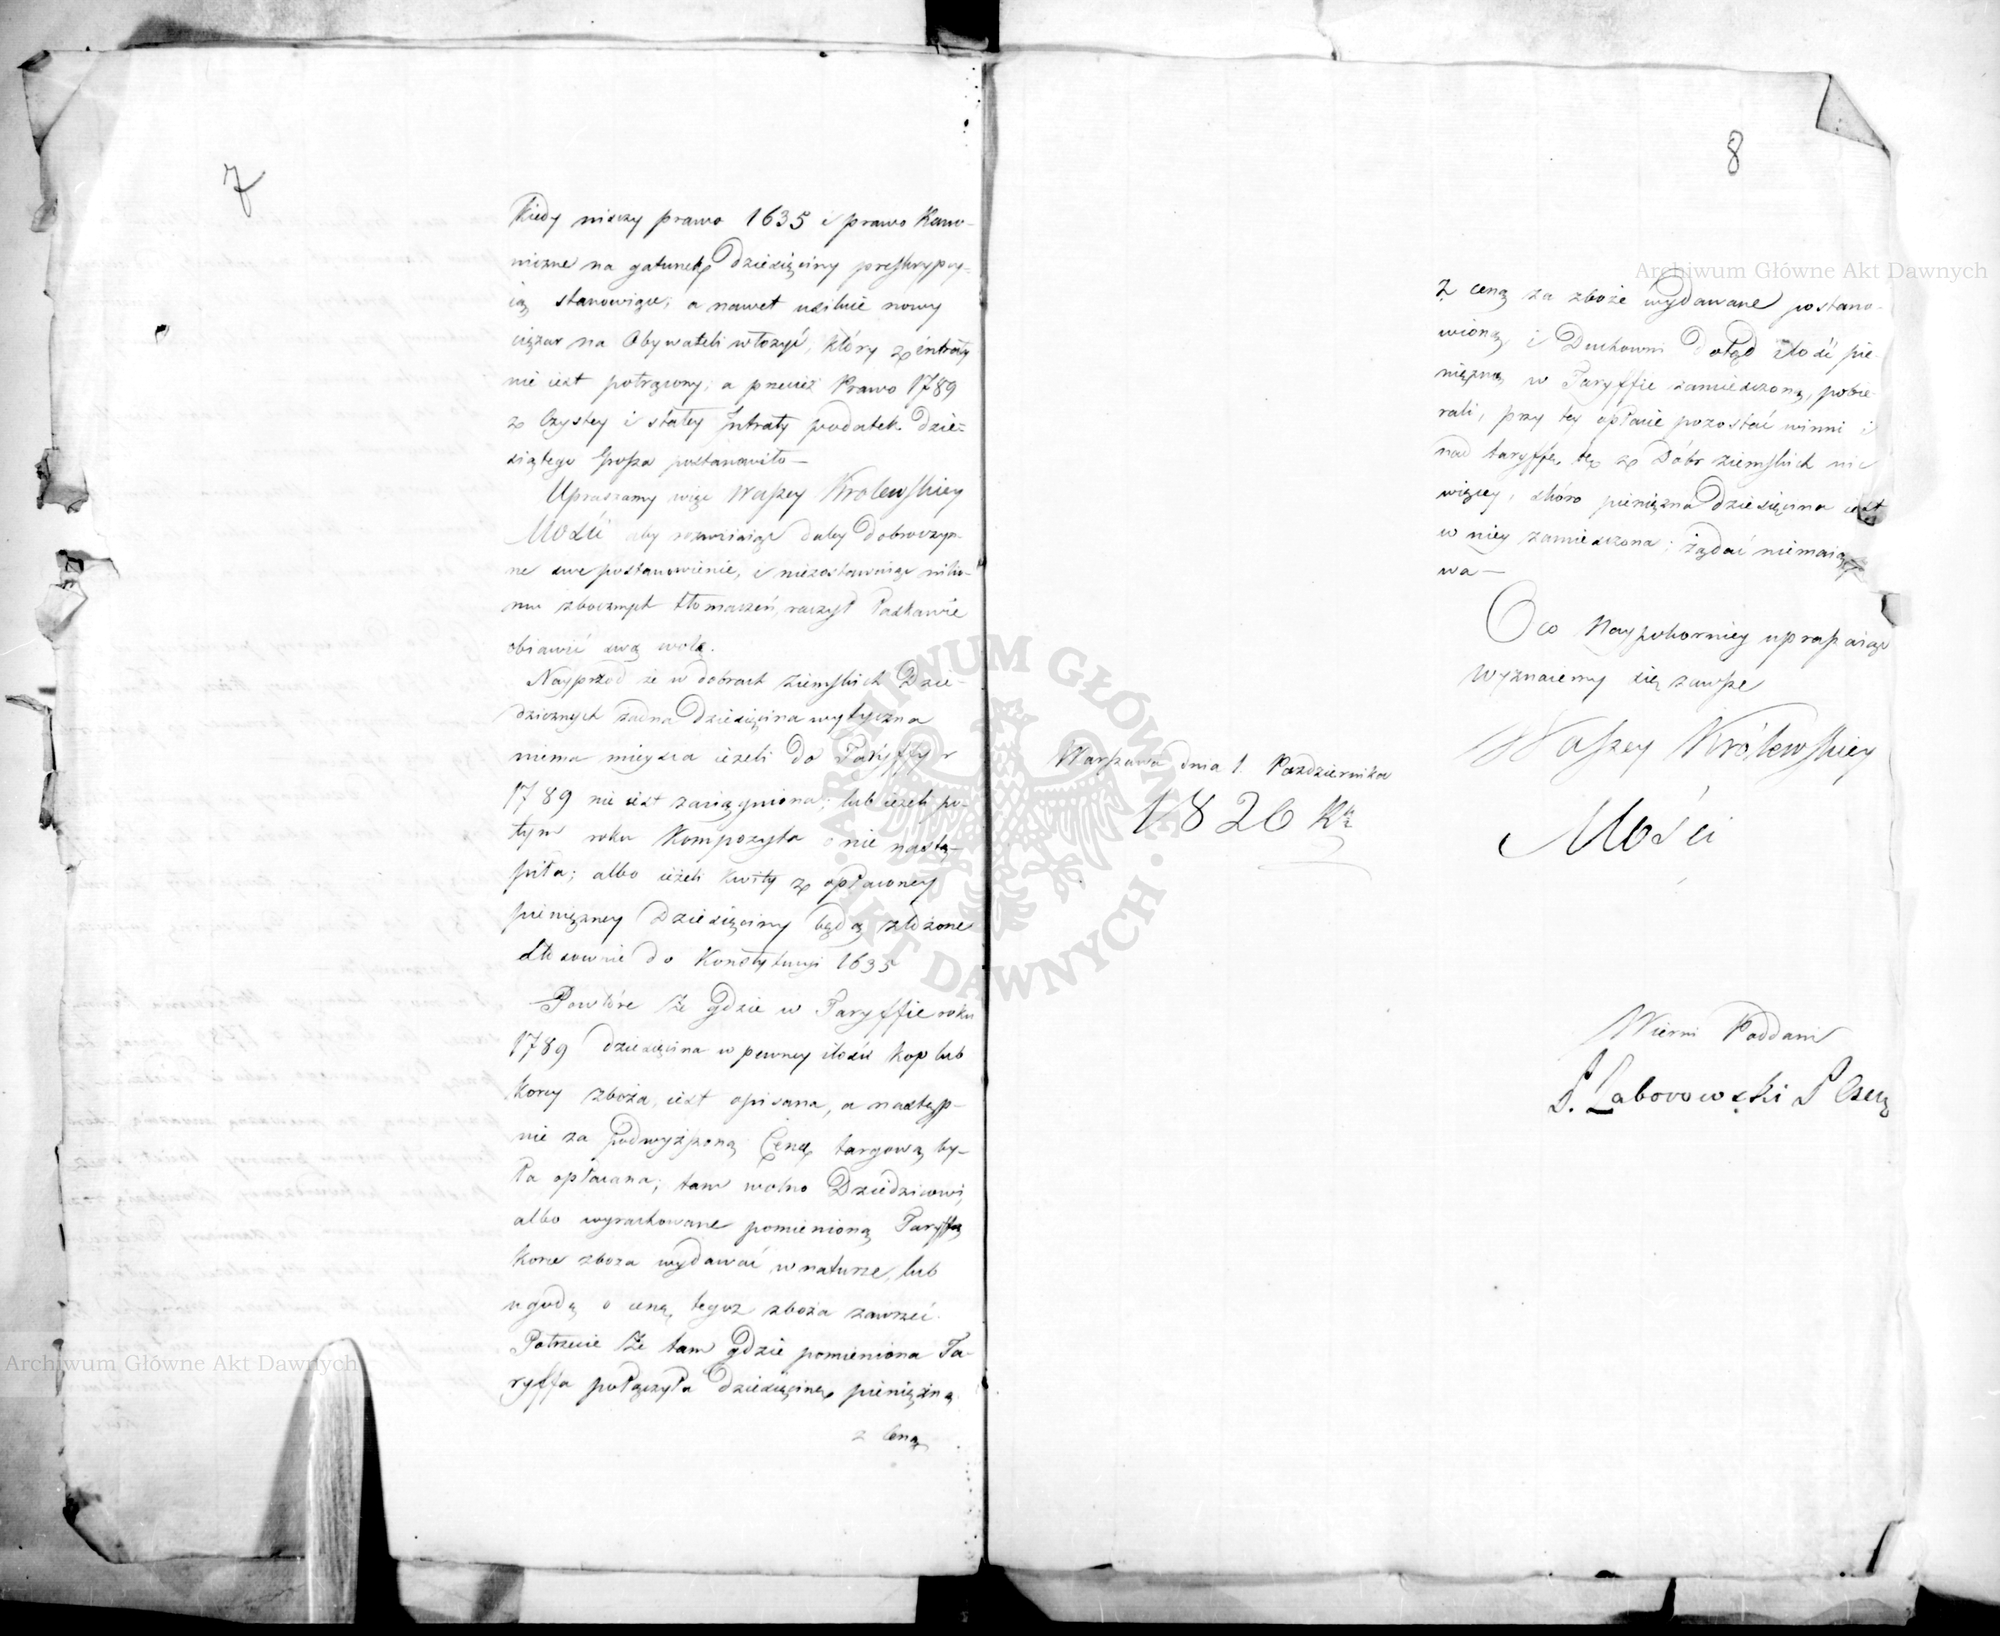 7
Kiedy niszczy prawo 1635 i prawo Kano-
niczne na gatunek Dziesięciny preskrypcy-
ią stanowiące; a nawet usilnie nowy
ciężar na Obywateli włożyć, który z intraty
nie iest potrącony; a przecież Prawo 1789
z Czystey i stałey Intraty podatek dzie-
siątego Grosza postanowiło—
Upraszamy więc Waszey Królewskiey
Mości aby rozwiniaiąc daley dobroczyn-
ne swe postanowienie, i niezostawuiąc niko-
mu zbocznych tłomaczeń, raczył łaskawie
obiawić swą wolę.
Nayprzod że w dobrach ziemskich Dzie-
dzicznych żadna Dziesięcina wytyczna
niema mieysca ieżeli do Taryffy r
1789 nie iest zaciągniona; lub ieżeli po-
tym roku Kompozyta nie nastą-
piła; albo ieżeli kwity z opłaconey
pienięzney Dziesięciny będą złożone
stosownie do Konstytucyi 1635
Powtóre że gdzie w Taryffie roku
1789 dziesięcina w pewney ilości kop lub
korcy zboża, iest opisana, a następ-
nie za podwyższoną Cenę targową by-
ła opłacana; tam wolno Dziedzicowi,
albo wyrachowane pomienioną Taryffą
korce zboża wydawać w naturze, lub
ugodę o cenę tegoz zboża zawrzeć.
Potrzecie że tam gdzie pomieniona Ta-
ryffa połączyła dziesięcinę pieniężną
z Ceną
8
z ceną za zboże wydawane postano-
wioną i Duchowni dotąd ilość pie-
niężną w Taryffie zamieszczoną, pobie-
rali, przy tey opłacie pozostać winni i
nad taryffę tę z Dóbr ziemskich nic
więcey, skóro pieniężna dziesięcina iest
w niey zamieszczona; żądać niemaią pra-
wa—
O co Naypokorniey upraszaiąc
wyznaiemy się zawsze
Waszey Królewskiey
Mości
Warszawa dnia 1. Października
1826 Rku
Wierni Poddani
Archiwum Główne Akt Dawnych
Archiwum Główne Akt Dawnych
ARCHIWUM GŁÓWNE · AKT DAWNYCH ·